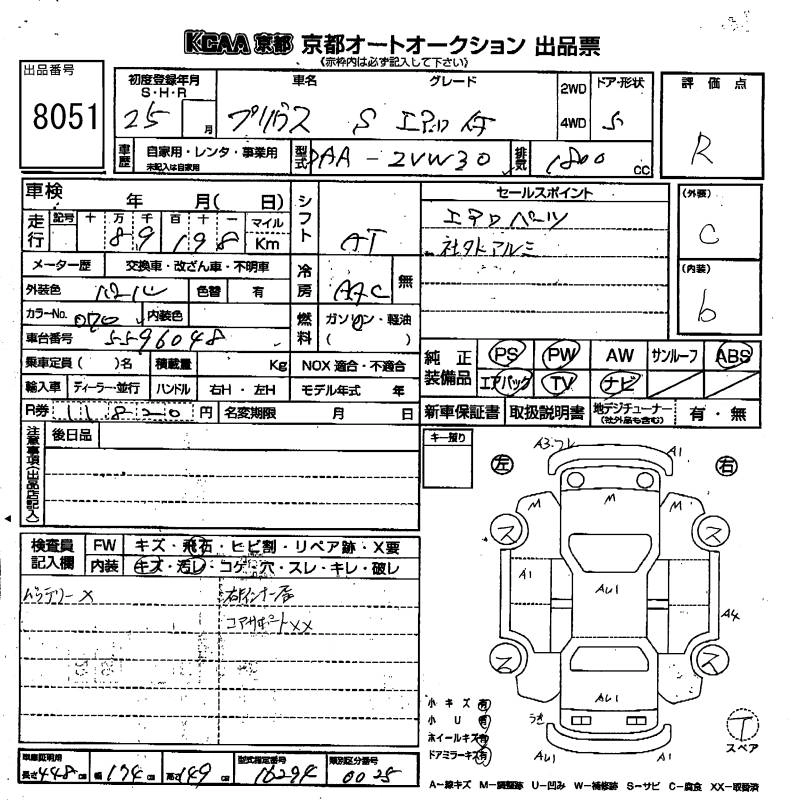 KCAA 京都 京都オートオークション 出品票
《赤枠内は必ず記入して下さい》
出品番号
8051
初度登録年月
S・H・R
25 月
車名
プリウス
グレード
S エアロ
2WD
4WD
ドア・形状
5
評価点
R
車歴
自家用・レンタ・事業用
未記入は自家用
型式
DAA-ZVW30
排気
1800 CC
車検
年 月( 日)
走行
記号 十 万 千 百 十 一
8 9 1 9 8
マイル
Km
シフト
AT
セールスポイント
エアロパーツ
社外アルミ
(外装)
C
(内装)
b
メーター歴
交換車・改ざん車・不明車
冷房
AAC
無
外装色
パール
色替
有
カラーNo.
070
内装色
燃料
ガソリン・軽油
( )
車台番号
5596048
乗車定員( )名
積載量
Kg
NOX 適合・不適合
輸入車
ディーラー・並行
ハンドル
右H・左H
モデル年式 年
R券
11820 円
名変期限 月 日
純正装備品
PS PW AW サンルーフ ABS
エアバッグ TV ナビ
新車保証書 取扱説明書
地デジチューナー
(社外品も含む)
有・無
注意事項(出品店記入)
後日品
キー預り
検査員記入欄
FW
キズ・飛石・ヒビ割・リペア跡・X要
内装
キズ・汚レ・コゲ・穴・スレ・キレ・破レ
バッテリーX
右インナー
コアサポートXX
左
右
A3・フレ
A1
M
M
M
ス
ス
A1
AU1
A4
ス
ス
AU1
うき
AU1
A1
小キズ 有
小U 有
ホイールキズ 有
ドアミラーキズ 有
T
スペア
車庫証明用
長さ 448 cm
幅 174 cm
高さ 149 cm
型式指定番号
16294
類別区分番号
0025
A-線キズ M-調整跡 U-凹み W-補修跡 S-サビ C-腐食 XX-取替済